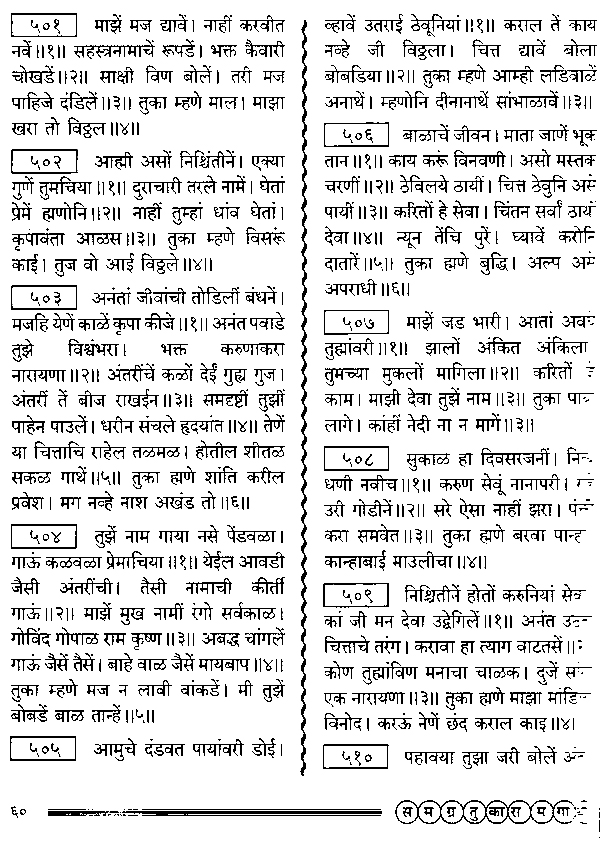 ५०१ माझें मज द्यावें। नाहीं करवीत
नवें॥१॥ सहस्त्रनामाचें रूपडें। भक्त कैवारी
चोखडें॥२॥ साक्षी विण बोलें। तरी मज
पाहिजे दंडिलें॥३॥ तुका म्हणे माल। माझा
खरा तो विठ्ठल॥४॥
५०२ आह्मी असों निश्चिंतीनें। एक्या
गुणें तुमचिया॥१॥ दुराचारी तरले नामें। घेतां
प्रेमें ह्मणोनि॥२॥ नाहीं तुम्हां धांव घेतां।
कृपावंता आळस॥३॥ तुका म्हणे विसरूं
काई। तुज वो आई विठ्ठले॥४॥
५०३ अनंतां जीवांची तोडिलीं बंधनें।
मजहि येणें काळें कृपा कीजे॥१॥ अनंत पवाडे
तुझे विश्वंभरा। भक्त करुणाकरा
नारायणा॥२॥ अंतरींचें कळों देईं गुह्य गुज।
अंतरीं तें बीज राखईन॥३॥ समदृष्टीं तुझीं
पाहेन पाउलें। धरीन संचले हृदयांत॥४॥ तेणें
या चित्ताचि राहेल तळमळ। होतील शीतळ
सकळ गाथें॥५॥ तुका ह्मणे शांति करील
प्रवेश। मग नव्हे नाश अखंड तो॥६॥
५०४ तुझें नाम गाया नसे पेंडवळा।
गाऊं कळवळा प्रेमाचिया॥१॥ येईल आवडी
जैसी अंतरींची। तैसी नामाची कीर्ती
गाऊं॥२॥ माझें मुख नामीं रंगो सर्वकाळ।
गोविंद गोपाळ राम कृष्ण॥३॥ अबद्ध चांगलें
गाऊं जैसें तैसें। बाहे वाळ जैसें मायबाप॥४॥
तुका म्हणे मज न लावी वांकडें। मी तुझें
बोबडें बाळ तान्हें॥५॥
५०५ आमुचे दंडवत पायांवरी डोई।
व्हावें उतराई ठेवूनियां॥१॥ कराल तें काय
नव्हे जी विठ्ठला। चित्त द्यावें बोला
बोबडिया॥२॥ तुका म्हणे आम्ही लडिवाळें
अनाथें। म्हणोनि दीनानाथें सांभाळावें॥३॥
५०६ बाळाचें जीवन। माता जाणें भूक
तान॥१॥ काय करूं विनवणी। असो मस्तक
चरणीं॥२॥ ठेविलये ठायीं। चित्त ठेवुनि असें
पायीं॥३॥ करितों हे सेवा। चिंतन सर्वां ठायीं
देवा॥४॥ न्यून तेंचि पुरें। घ्यावें करोनि
दातारें॥५॥ तुका ह्मणे बुद्धि। अल्प असे
अपराधी॥६॥
५०७ माझें जड भारी। आतां
तुह्मांवरी॥१॥ झालों अंकित अंकिला
तुमच्या मुकलों मागिला॥२॥ करितों
काम। माझी देवा तुझें नाम॥३॥ तुका
लागे। कांहीं नेदी ना न मागें॥३॥
५०८ सुकाळ हा दिवसरजनीं।
धणी नवीच॥१॥ करुण सेवूं नानापरी।
उरी गोडीनें॥२॥ सरे ऐसा नाहीं झरा।
करा समवेत॥३॥ तुका ह्मणे बरवा पान्हा
कान्हाबाई माउलीचा॥४॥
५०९ निश्चितीनें होतों करुनियां
कां जी मन देवा उद्वेगिलें॥१॥ अनंत
चित्ताचे तरंग। करावा हा त्याग वाटतसें॥
कोण तुह्मांविण मनाचा चाळक। दुजें
एक नारायणा॥३॥ तुका ह्मणे माझा
विनोद। करऊं नेणें छंद कराल काइ॥४॥
५१० पहावया तुझा जरी बोलें
६० समग्र तुकाराम गाथा